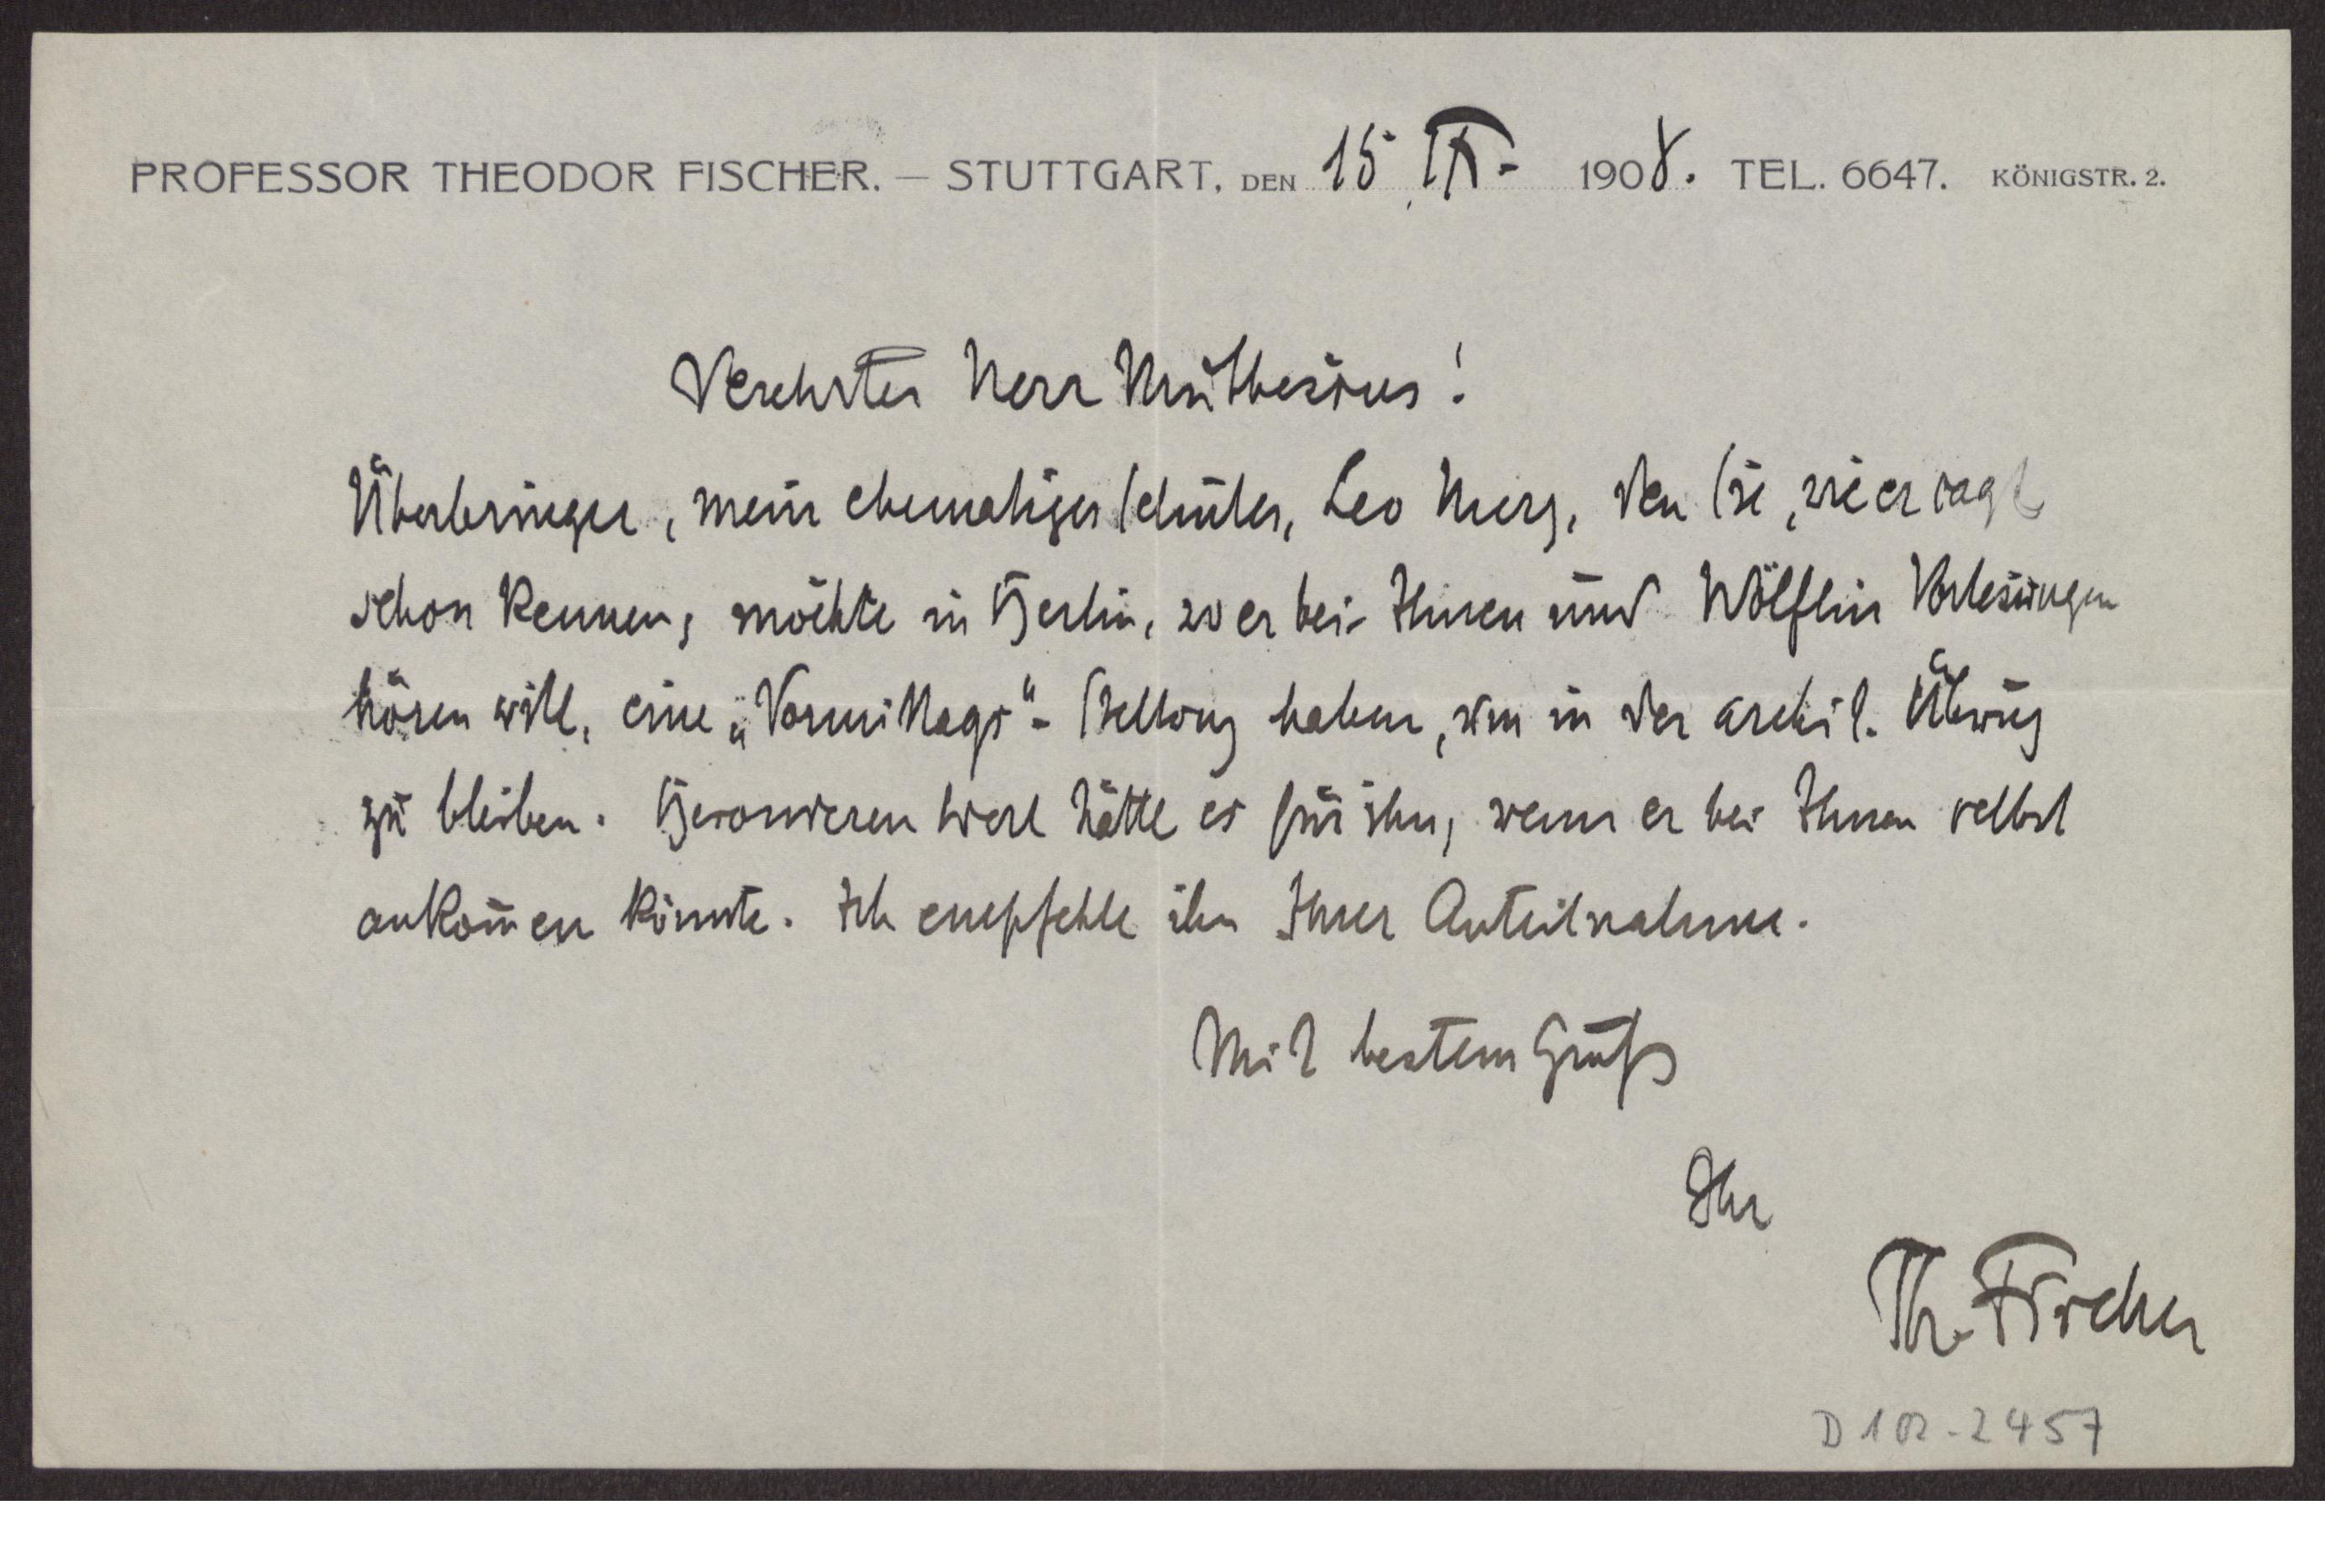 PROFESSOR THEODOR FISCHER. — STUTTGART, DEN 15 IX. 1908. TEL. 6647. KÖNIGSTR. 2.
Verehrter Herr Muthesius!
Überbringer, mein ehemaliger Schüler, Leo, den Sie, wie er sagt
schon kennen, möchte in Berlin, wo er bei Ihnen und Wölfflin Vorlesungen
hören will, eine „Vormittags"- Stellung haben, um in der archit. Übung
zu bleiben. Besonderen Wert hätte es für ihn, wenn er bei Ihnen selbst
ankom̄en könnte. Ich empfehle ihn Ihrer Anteilnahme.
Mit bestem Gruß
Ihr
Th. Fischer
D 102-2457